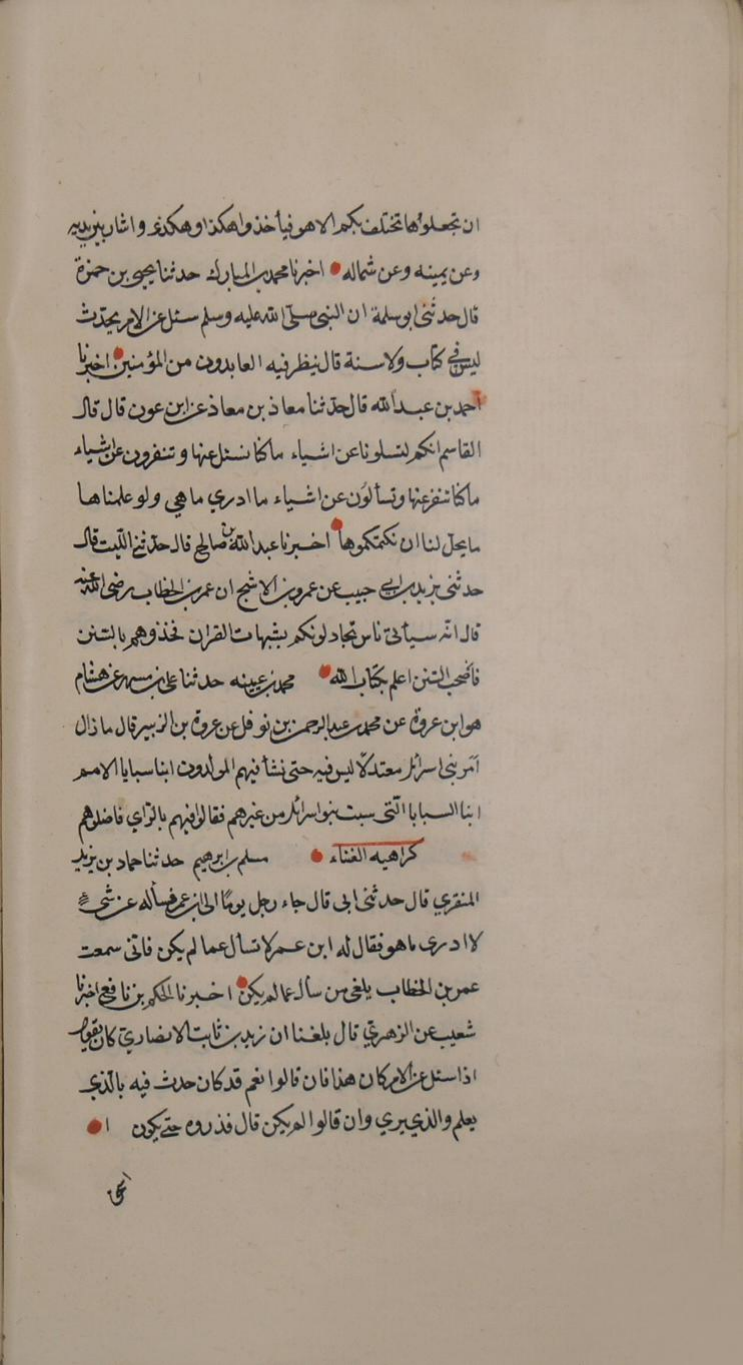 ان تجعلوها تختلف بكم الاهو فيأخذوا هكذا وهكذى واشار بين يديه
وعن يمينه وعن شماله اخبرنا محمد بن المبارك حدثنا يحيى بن حمزة
قال حدثني ابو سلمة ان النبي صلى الله عليه وسلم سئل عن الامر يحدث
ليس في كتاب ولا سنة قال ينظر فيه العابدون من المؤمنين اخبرنا
احمد بن عبد الله قال حدثنا معاذ بن معاذ عن ابن عون قال قال
القاسم انكم لتسلونا عن اشياء ما كنا نسئل عنها وتنفرون عن اشياء
ما كنا ننفر عنها وتسألون عن اشياء ما ادري ما هي ولو علمناها
ما يحل لنا ان نكتمكموها اخبرنا عبد الله بن صالح قال حدثني الليث قال
حدثني يزيد بن ابي حبيب عن عمرو بن الاشج ان عمر بن الخطاب رضي الله عنه
قال انه سيأتي ناس تجادلونكم بشبهات القران فخذوهم بالسنن
فاصحب السنن اعلم بكتاب الله محمد بن عيينه حدثنا علي بن مسهر عن هشام
هو ابن عروة عن محمد بن عبد الرحمن بن نوفل عن عروة بن الزبير قال ما زال
امر بني اسرائل معتدلا ليس فيه حتى نشأ فيهم المولدون ابنا سبايا الامم
ابنا السبايا التي سبت بنو اسرائل من غيرهم فقالوا فيهم بالراي فاضلوهم
كراهيه الفتاء مسلم بن ابرهيم حدثنا حماد بن يزيد
المنقري قال حدثني ابي قال جاء رجل يوما الى ابن عمر فسأله عن شي
لا ادرى ما هو فقال له ابن عمر لا تسأل عما لم يكن فاني سمعت
عمر بن الخطاب يلغي من سأل عما لم يكن اخبرنا الحكم بن نافع اخبرنا
شعيب عن الزهري قال بلغنا ان زيد بن ثابت الانصاري كان يقول
اذا سئل عن الامر كان هذا فان قالوا نعم قد كان حدث فيه بالذي
يعلم والذي يرى وان قالوا لم يكن قال فذروه حتى يكون ا